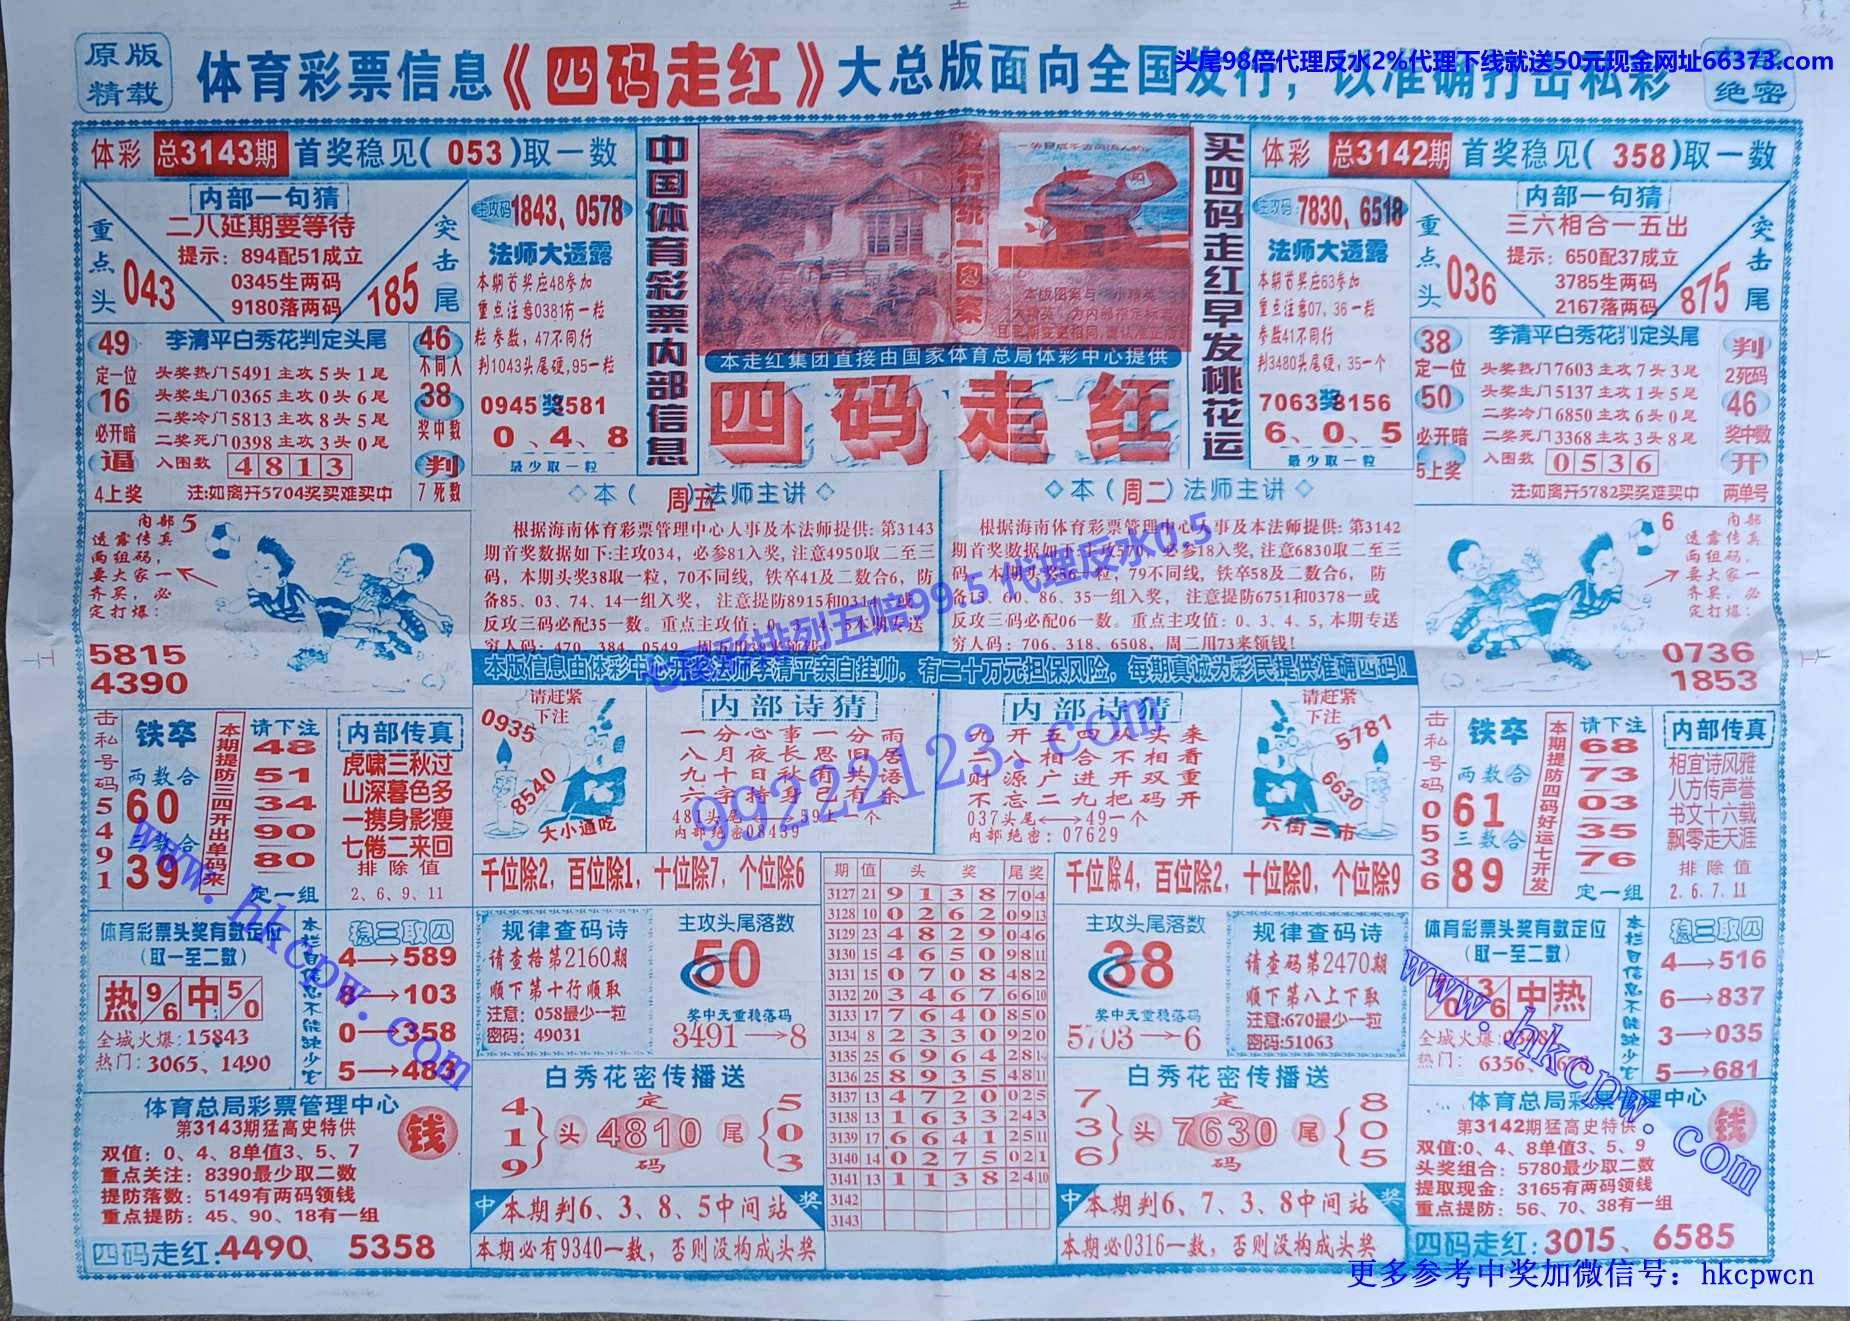 原版
精载
体育彩票信息《四码走红》大总版面向全国发行，以准确打击私彩
绝密
头尾98倍代理反水2%代理下线就送50元现金网址66373.com
体彩 总3143期 首奖稳见(053)取一数
内部一句猜
二八延期要等待
提示：894配51成立
0345生两码
9180落两码
重点头 043
突击尾 185
主攻码 1843、0578
法师大透露
本期首奖应48参加
重点注意0381有一粒
粒参数，47不同行
判1043头尾硬,95一粒
0945奖3581
0、4、8
最少取一粒
中国体育彩票内部信息
发行统一图案
本走红集团直接由国家体育总局体彩中心提供
四码走红
买四码走红早发桃花运
体彩 总3142期 首奖稳见(358)取一数
主攻码:7830,6518
法师大透露
本期首奖应63参加
重点注意07,36一粒
参数41不同行
判3480头尾硬,35一个
7063奖8156
6、0、5
最少取一粒
内部一句猜
三六相合一五出
提示：650配37成立
3785生两码
2167落两码
重点头 036
突击尾 875
49
定一位
16
必开暗
逼
4上奖
李清平白秀花判定头尾
头奖热门5491主攻5头1尾
头奖生门0365主攻0头6尾
二奖冷门5813主攻8头5尾
二奖死门0398主攻3头0尾
入围数 4813
注:如离开5704奖买难买中
46
不同人
38
奖中数
判
7死数
38
定一位
50
必开暗
5上奖
李清平白秀花判定头尾
头奖热门7603主攻7头3尾
头奖生门5137主攻1头5尾
二奖冷门6850主攻6头0尾
二奖死门3368主攻3头8尾
入围数 0536
注:如离开5782买奖难买中
判
2死码
46
奖中数
开
两单号
内部5
透露传真
两组码，
要大家一
齐买，必
定打爆：
5815
4390
◇本(周五)法师主讲◇
根据海南体育彩票管理中心人事及本法师提供：第3143
期首奖数据如下:主攻034，必参81入奖，注意4950取二至三
码，本期头奖38取一粒，70不同线，铁卒41及二数合6，防
备85、03、74、14一组入奖，注意提防8915和0314一或
反攻三码必配35一数。重点主攻值：0、3、4、5本期专送
穷人码：470、384、0549
◇本(周二)法师主讲◇
根据海南体育彩票管理中心人事及本法师提供：第3142
期首奖数据如下:主攻570，必参18入奖，注意6830取二至三
码，本期头奖56一粒，79不同线，铁卒58及二数合6，防
备15、60、86、35一组入奖，注意提防6751和0378一或
反攻三码必配06一数。重点主攻值：0、3、4、5，本期专送
穷人码：706、318、6508，周二用73来领钱！
6 内部
透露传真
两组码，
要大家一
齐买，必
定打爆：
0736
1853
本版信息由体彩中心开奖法师李清平亲自挂帅，有二十万元担保风险，每期真诚为彩民提供准确四码！
七星彩排列五赔99.5 代理反水0.5
99222123.com
击私号码5491
铁卒
两数合
60
三数合
39
本期提防三四开出单码来
请下注
48
51
34
90
80
定一组
内部传真
虎啸三秋过
山深暮色多
一携身影瘦
七倦二来回
排除值
2.6.9.11
请赶紧
下注
0935
8540
大小通吃
内部诗猜
一分心事一分雨
八月夜长思旧居
九十日秋有共语
六字持身已有余
内部绝密08439
内部诗猜
九开五四从头来
财源广进开双重
不忘二九把码开
037头尾⟷49一个
内部绝密：07629
请赶紧
下注
5781
6630
六街三市
击私号码0536
铁卒
两数合
61
三数合
89
本期提防四码好运七开发
请下注
68
73
03
35
76
定一组
内部传真
相宜诗风雅
八方传声誉
书文十六载
飘零走天涯
排除值
2.6.7.11
千位除2，百位除1，十位除7，个位除6
千位除4，百位除2，十位除0，个位除9
体育彩票头奖有数定位
(取一至二数)
热 9/6 中 5/0
全城火爆:15843
热门：3065、1490
稳三取四
4→589
8→103
0→358
5→483
规律查码诗
请查格第2160期
顺下第十行顺取
注意：058最少一粒
密码：49031
主攻头尾落数
50
奖中无重稳落码
3491→8
期 值 头奖 尾奖
3127 21 9138 704
3128 10 0262 0913
3129 23 4829 046
3130 15 4650 9811
3131 15 0708 482
3132 20 3467 6610
3133 17 7640 850
3134 8 2330 920
3135 25 6964 2814
3136 25 8935 4811
3137 13 4720 025
3138 13 1633 243
3139 17 6641 2511
3140 14 0275 021
3141 13 1138 2410
3142
3143
主攻头尾落数
38
奖中无重稳落码
5703→6
规律查码诗
请查码第2470期
顺下第八上下取
注意:670最少一粒
密码:51063
体育彩票头奖有数定位
(取一至二数)
中 热
全城火爆:
热门：6356、
稳三取四
4→516
6→837
3→035
5→681
体育总局彩票管理中心
第3143期猛高史特供
钱
双值：0、4、8单值3、5、7
重点关注：8390最少取二数
提防落数：5149有两码领钱
重点提防：45、90、18有一组
四码走红:4490、5358
白秀花密传播送
4
1
9
头 定 4810 码 尾
5
0
3
中 本期判6、3、8、5中间站 奖
本期必有9340一数，否则没构成头奖
白秀花密传播送
7
3
6
头 定 7630 码 尾
8
0
5
中 本期判6、7、3、8中间站 奖
本期必0316一数，否则没构成头奖
体育总局彩票管理中心
第3142期猛高史特供
钱
双值:0、4、8单值3、5、9
头奖组合：5780最少取二数
提取现金：3165有两码领钱
重点提防：56、70、38有一组
四码走红:3015、6585
www.hkcpw.com
www.hkcpw.com
更多参考中奖加微信号：hkcpwcn